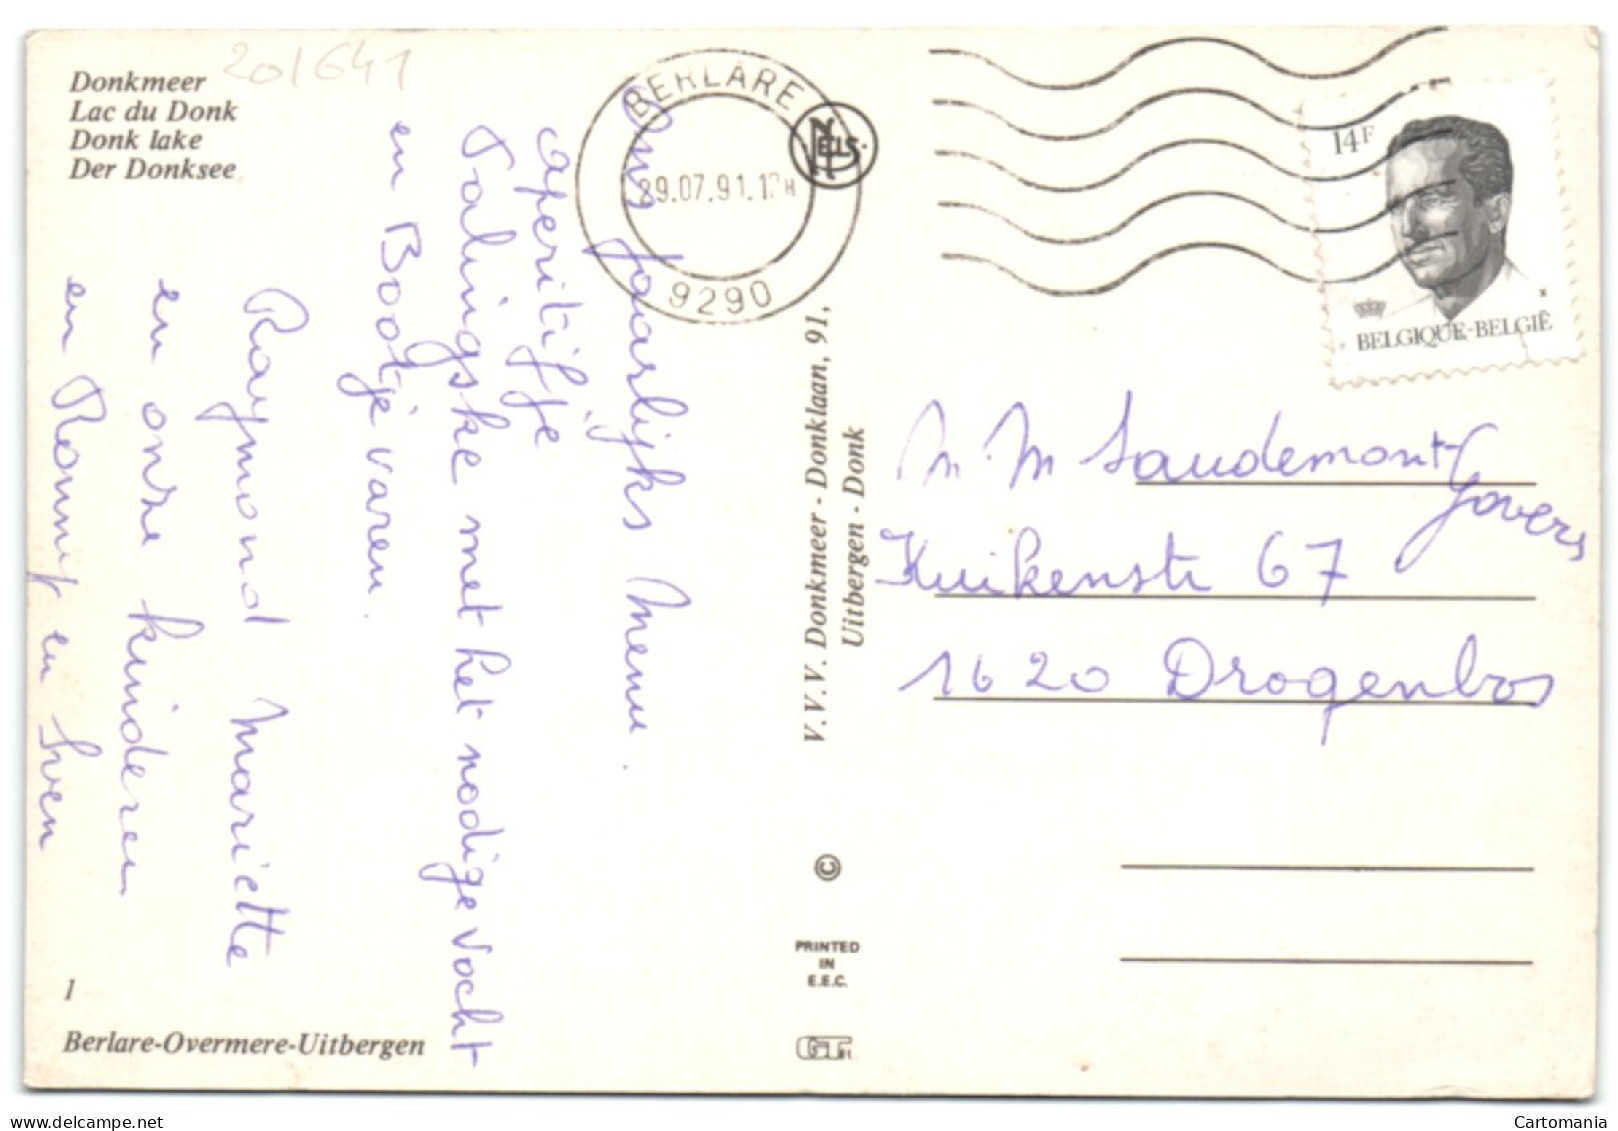 Donkmeer
Lac du Donk
Donk lake
Der Donksee
201641
BERLARE
29.07.91.1 H
9290
NELS
14F
BELGIQUE-BELGIË
Ons Jaarlijks menu.
aperitifje
Palingske met het nodige vocht
en Bootje varen.
Raymond Mariette
en onze kinderen
en Ronny en Sven
V.V.V. Donkmeer - Donklaan, 91,
Uitbergen - Donk
©
PRINTED
IN
E.E.C.
M. M Saudemont-Govers
Kuikenstr 67
1620 Drogenbos
1
Berlare-Overmere-Uitbergen
www.delcampe.net
Cartomania